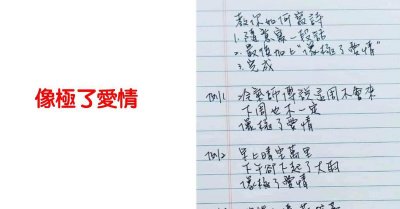 像極了愛情
教你如何寫詩
1.隨意寫一段話
2.最後加上"像極了愛情"
3.完成
例1 冷氣師傅說這周不會來
下周也不一定
像極了愛情
例2 早上晴空萬里
下午卻下起了大雨
像極了愛情